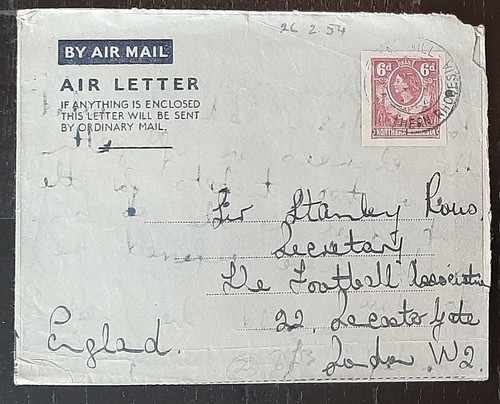 26 2 54
BY AIR MAIL
AIR LETTER
IF ANYTHING IS ENCLOSED
THIS LETTER WILL BE SENT
BY ORDINARY MAIL.
6d 6d
NORTHERN RHODESIA
HERN RHODESIA
Sir Stanley Rous.
Secretary
The Football Associatn
22, Lecaster Gate
London W2.
England.